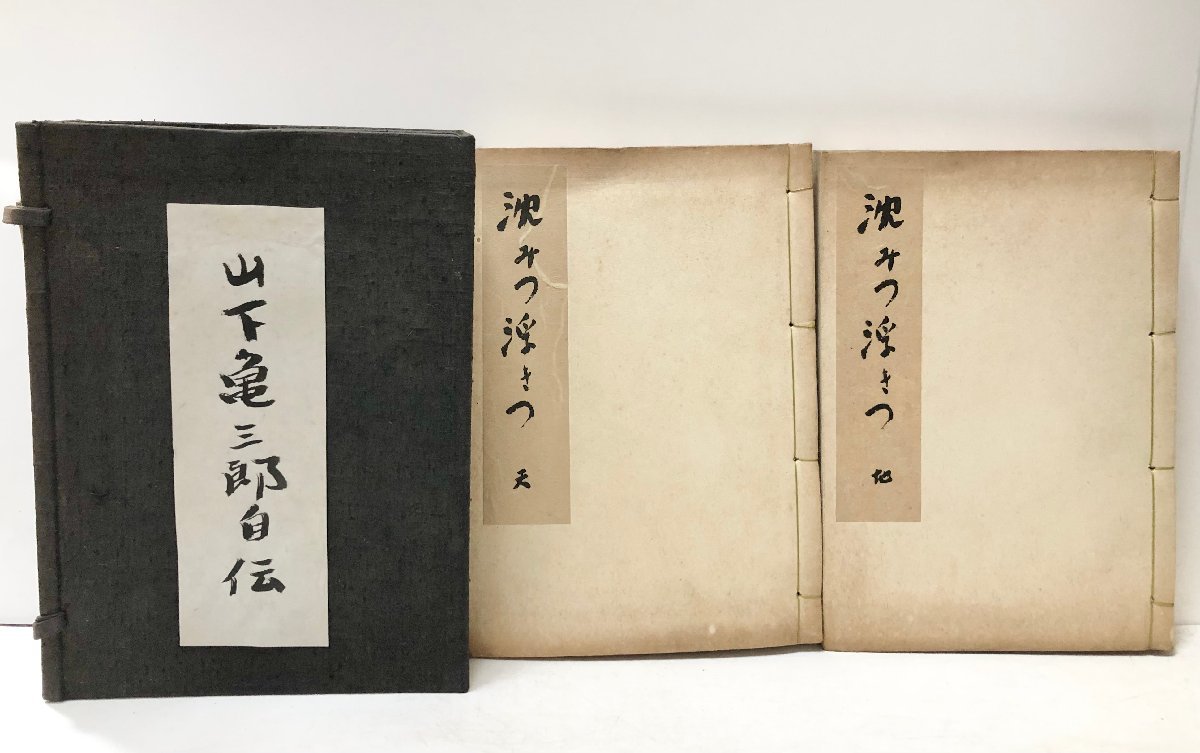 山下亀三郎自伝
沈みつ浮きつ 天
沈みつ浮きつ 地